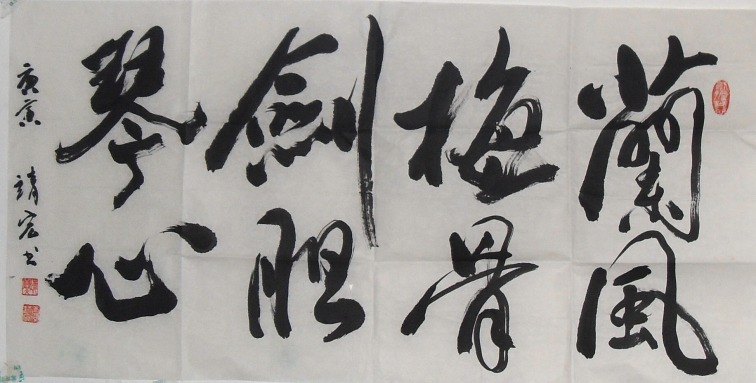 蘭風
梅骨
劍胆
琴心
庚寅 靖宏书